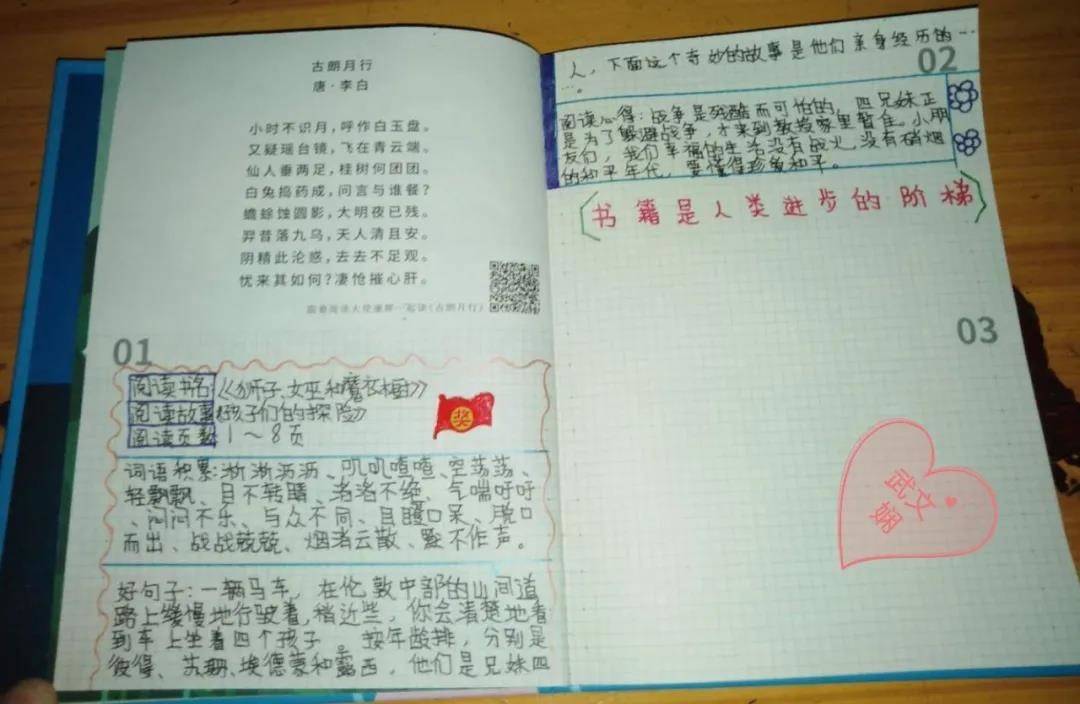 古朗月行
唐·李白
小时不识月，呼作白玉盘。
又疑瑶台镜，飞在青云端。
仙人垂两足，桂树何团团。
白兔捣药成，问言与谁餐？
蟾蜍蚀圆影，大明夜已残。
羿昔落九乌，天人清且安。
阴精此沦惑，去去不足观。
忧来其如何？凄怆摧心肝。
一起读《古朗月行》
01
阅读书名：《狮子、女巫和魔衣橱》
阅读故事：《孩子们的探险》
阅读页数 1～8页
奖
词语积累：淅淅沥沥、叽叽喳喳、空荡荡、
轻飘飘、目不转睛、滔滔不绝、气喘吁吁
、闷闷不乐、与众不同、目瞪口呆、脱口
而出、战战兢兢、烟消云散、默不作声。
好句子：一辆马车，在伦敦中部的山间道
路上缓慢地行驶着，稍近些，你会清楚地看
到车上坐着四个孩子。按年龄排，分别是
彼得、苏珊、埃德蒙和露西，他们是兄妹四
02
人，下面这个奇妙的故事是他们亲身经历的…
…。
阅读心得：战争是残酷而可怕的，四兄妹正
是为了躲避战争，才来到教授家里暂住。小朋
友们，我们幸福的生活没有战火，没有硝烟
的和平年代，要懂得珍爱和平。
书籍是人类进步的阶梯
03
武文
娴